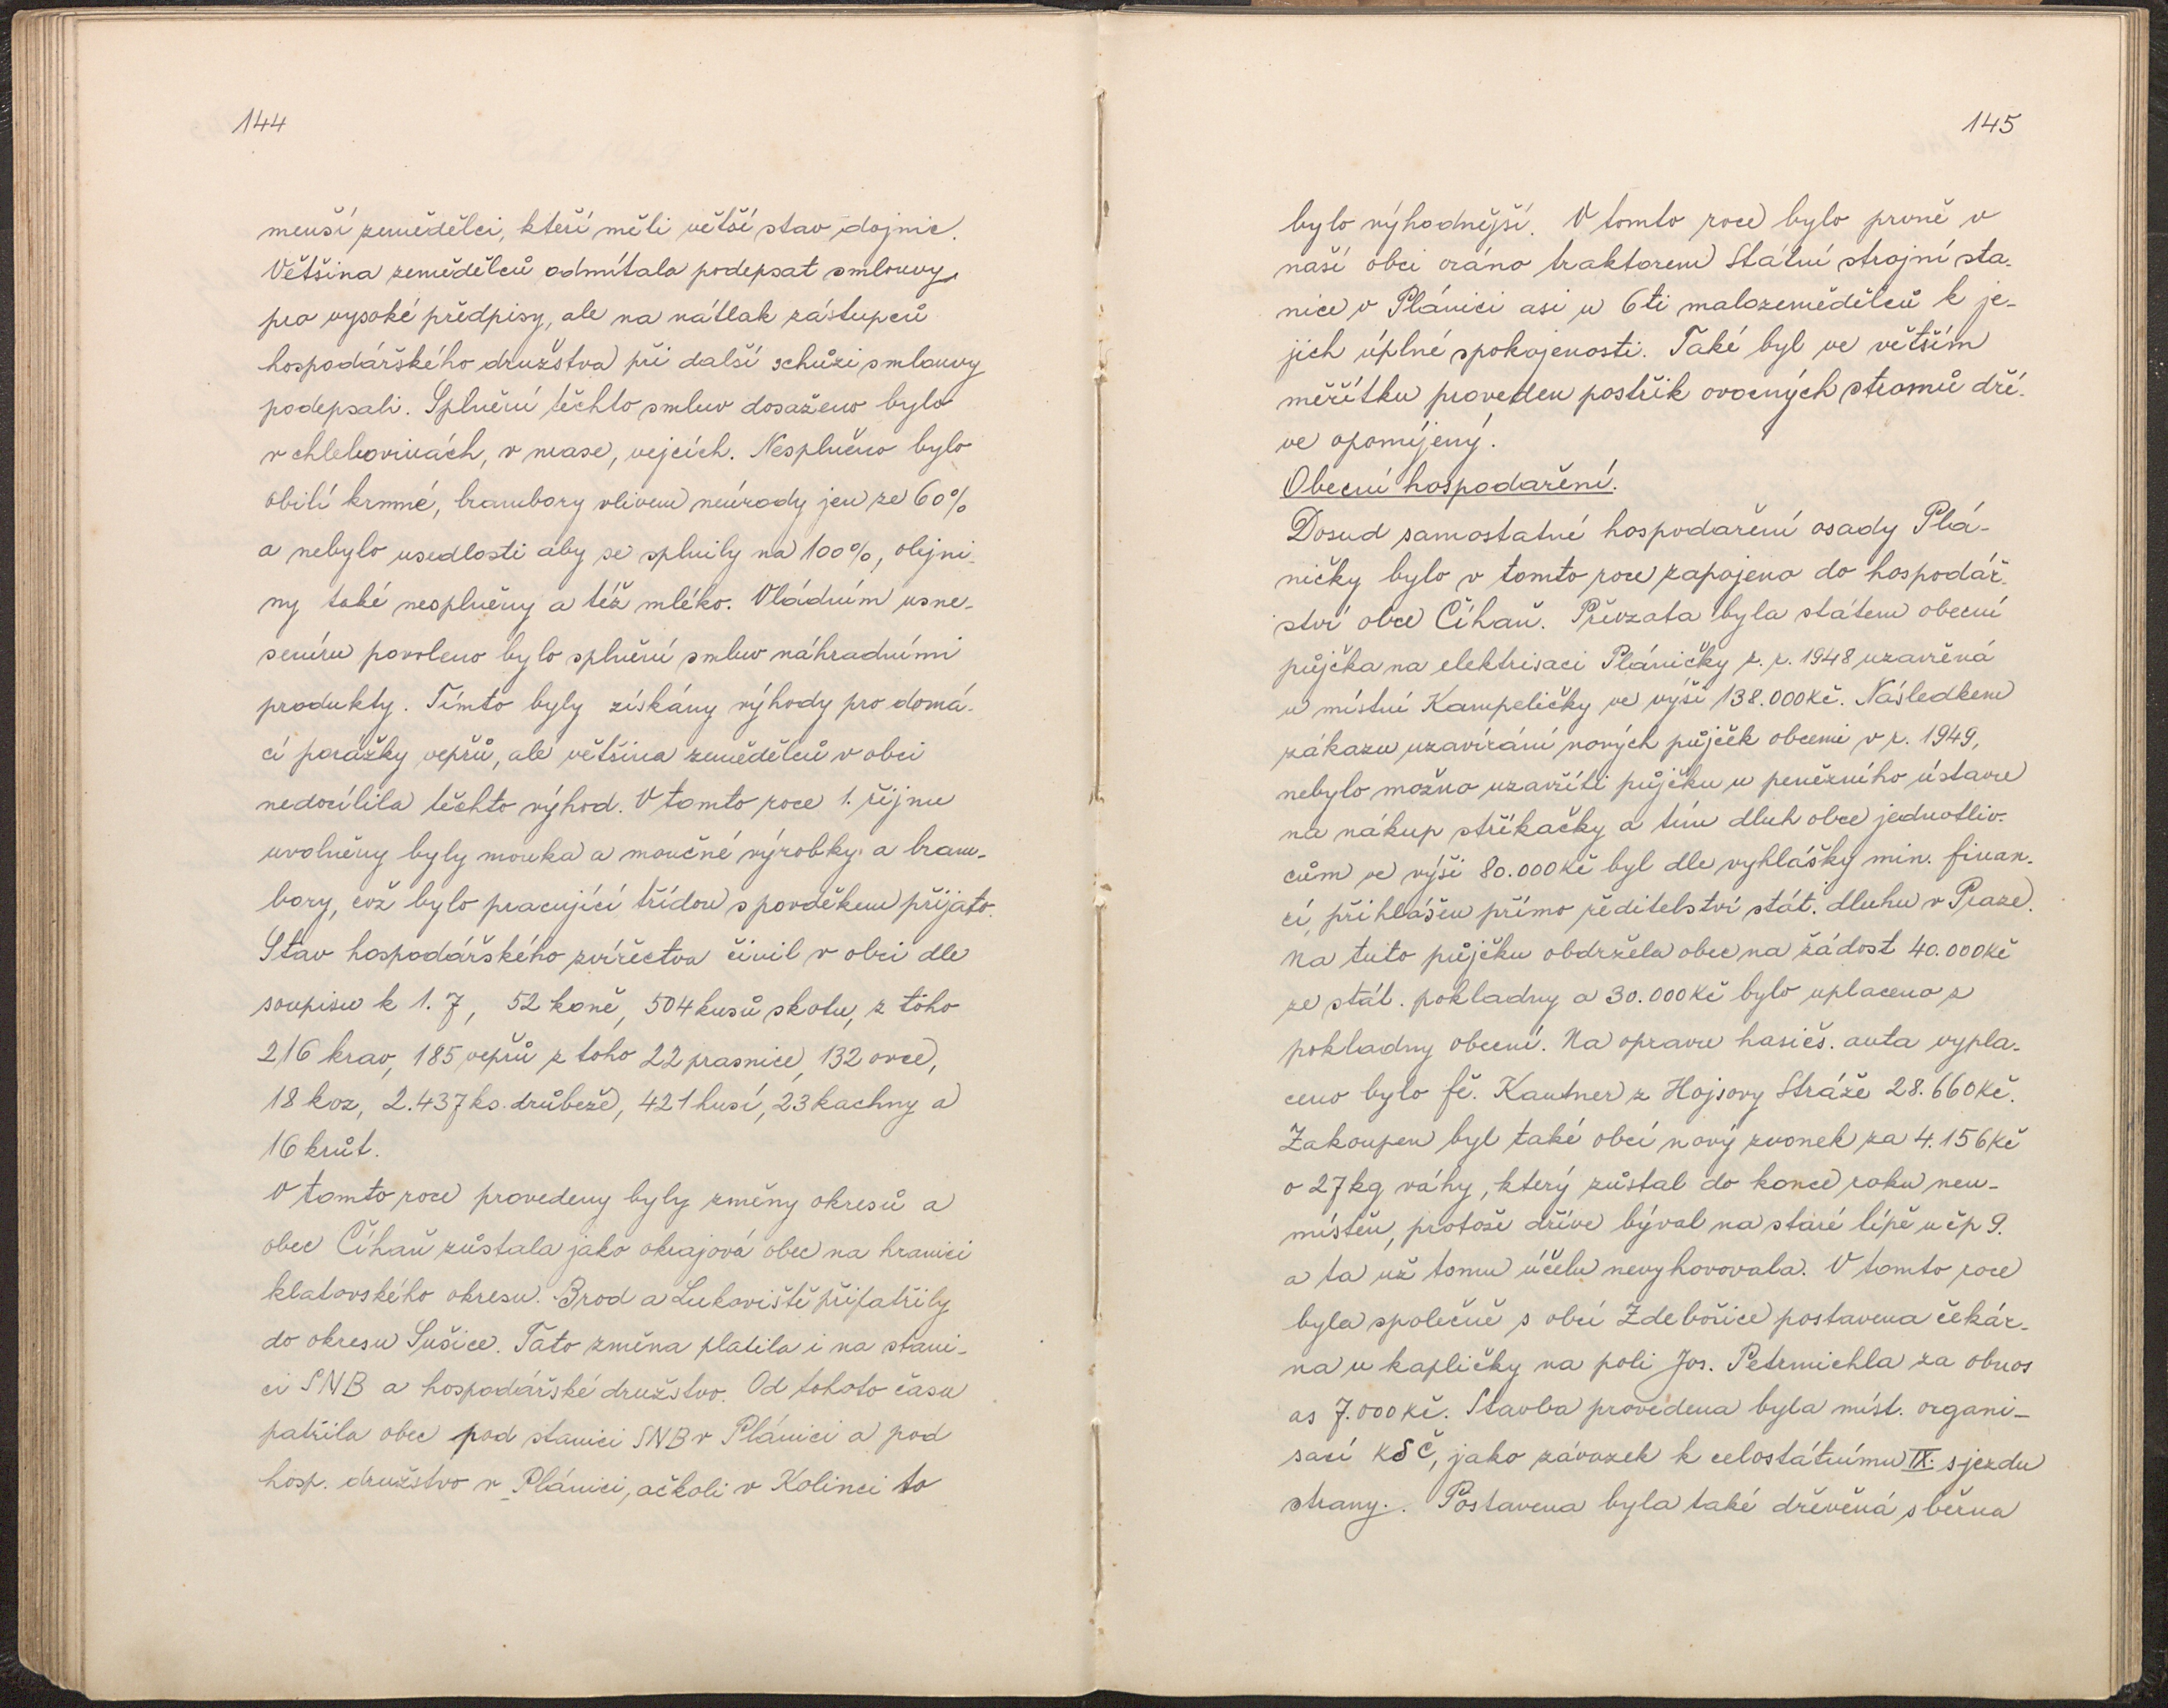 144
menší zemědělci, kteří měli větší stav dojnic.
Většina zemědělců odmítala podepsat smlouvy
pro vysoké předpisy, ale na nátlak zástupců
hospodářského družstva při další schůzi smlouvy
podepsali. Splnění těchto smluv dosaženo bylo
v chlebovinách, v mase, vejcích. Nesplněno bylo
obilí krmné, brambory vlivem neúrody jen ze 60%
a nebylo usedlosti aby se splnily na 100%, olejni-
ny také nesplněny a též mléko. Vládním usne-
sením povoleno bylo splnění smluv náhradními
produkty. Tímto byly získány výhody pro domá-
cí porážky vepřů, ale většina zemědělců v obci
nedocílila těchto výhod. V tomto roce 1. října
uvolněny byly mouka a moučné výrobky a bram-
bory, což bylo pracující třídou s povděkem přijato.
Stav hospodářského zvířectva činil v obci dle
soupisu k 1. 7, 52 koně, 504 kusů skotu, z toho
216 krav, 185 vepřů z toho 22 prasnice, 132 ovce,
18 koz, 2.437 ks. drůbeže, 421 husí, 23 kachny a
16 krůt.
V tomto roce provedeny byly změny okresů a
obec Číhaň zůstala jako okrajová obec na hranici
klatovského okresu. Brod a Lukoviště připatřily
do okresu Sušice. Tato změna platila i na stani-
ci SNB a hospodářské družstvo. Od tohoto času
patřila obec pod stanici SNB v Plánici a pod
hosp. družstvo v Plánici, ačkoli v Kolinci to
145
bylo výhodnější. V tomto roce bylo prvně v
naší obci oráno traktorem Státní strojní sta-
nice v Plánici asi u 6ti malozemědělců k je-
jich úplné spokojenosti. Také byl ve větším
měřítku proveden postřik ovocných stromů dří-
ve opomíjený.
Obecní hospodaření.
Dosud samostatné hospodaření osady Plá-
ničky bylo v tomto roce zapojeno do hospodář-
ství obce Číhaň. Převzata byla státem obecní
půjčka na elektrisaci Pláničky z. r. 1948 uzavřená
u místní Kampeličky ve výši 138.000Kč. Následkem
zákazu uzavírání nových půjček obcemi v r. 1949,
nebylo možno uzavříti půjčku u peněžního ústavu
na nákup stříkačky a tím dluh obce jednotliv-
cům ve výši 80.000Kč byl dle vyhlášky min. finan-
cí, přihlášen přímo ředitelství stát. dluhu v Praze.
Na tuto půjčku obdržela obec na žádost 40.000Kč
ze stát. pokladny a 30.000Kč bylo uplaceno z
pokladny obecní. Na opravu hasičs. auta vypla-
ceno bylo fě. Kautner z Hojsovy Stráže 28.660Kč.
Zakoupen byl také obcí nový zvonek za 4.156Kč
o 27kg váhy, který zůstal do konce roku neu-
místěn, protože dříve býval na staré lípě u čp 9.
a ta už tomu účelu nevyhovovala. V tomto roce
byla společně s obcí Zdebořice postavena čekár-
na u kapličky na poli Jos. Petrmichla za obnos
as 7.000Kč. Stavba provedena byla míst. organi-
sací KSČ, jako závazek k celostátnímu IX. sjezdu
strany. Postavena byla také dřevěná sběrna